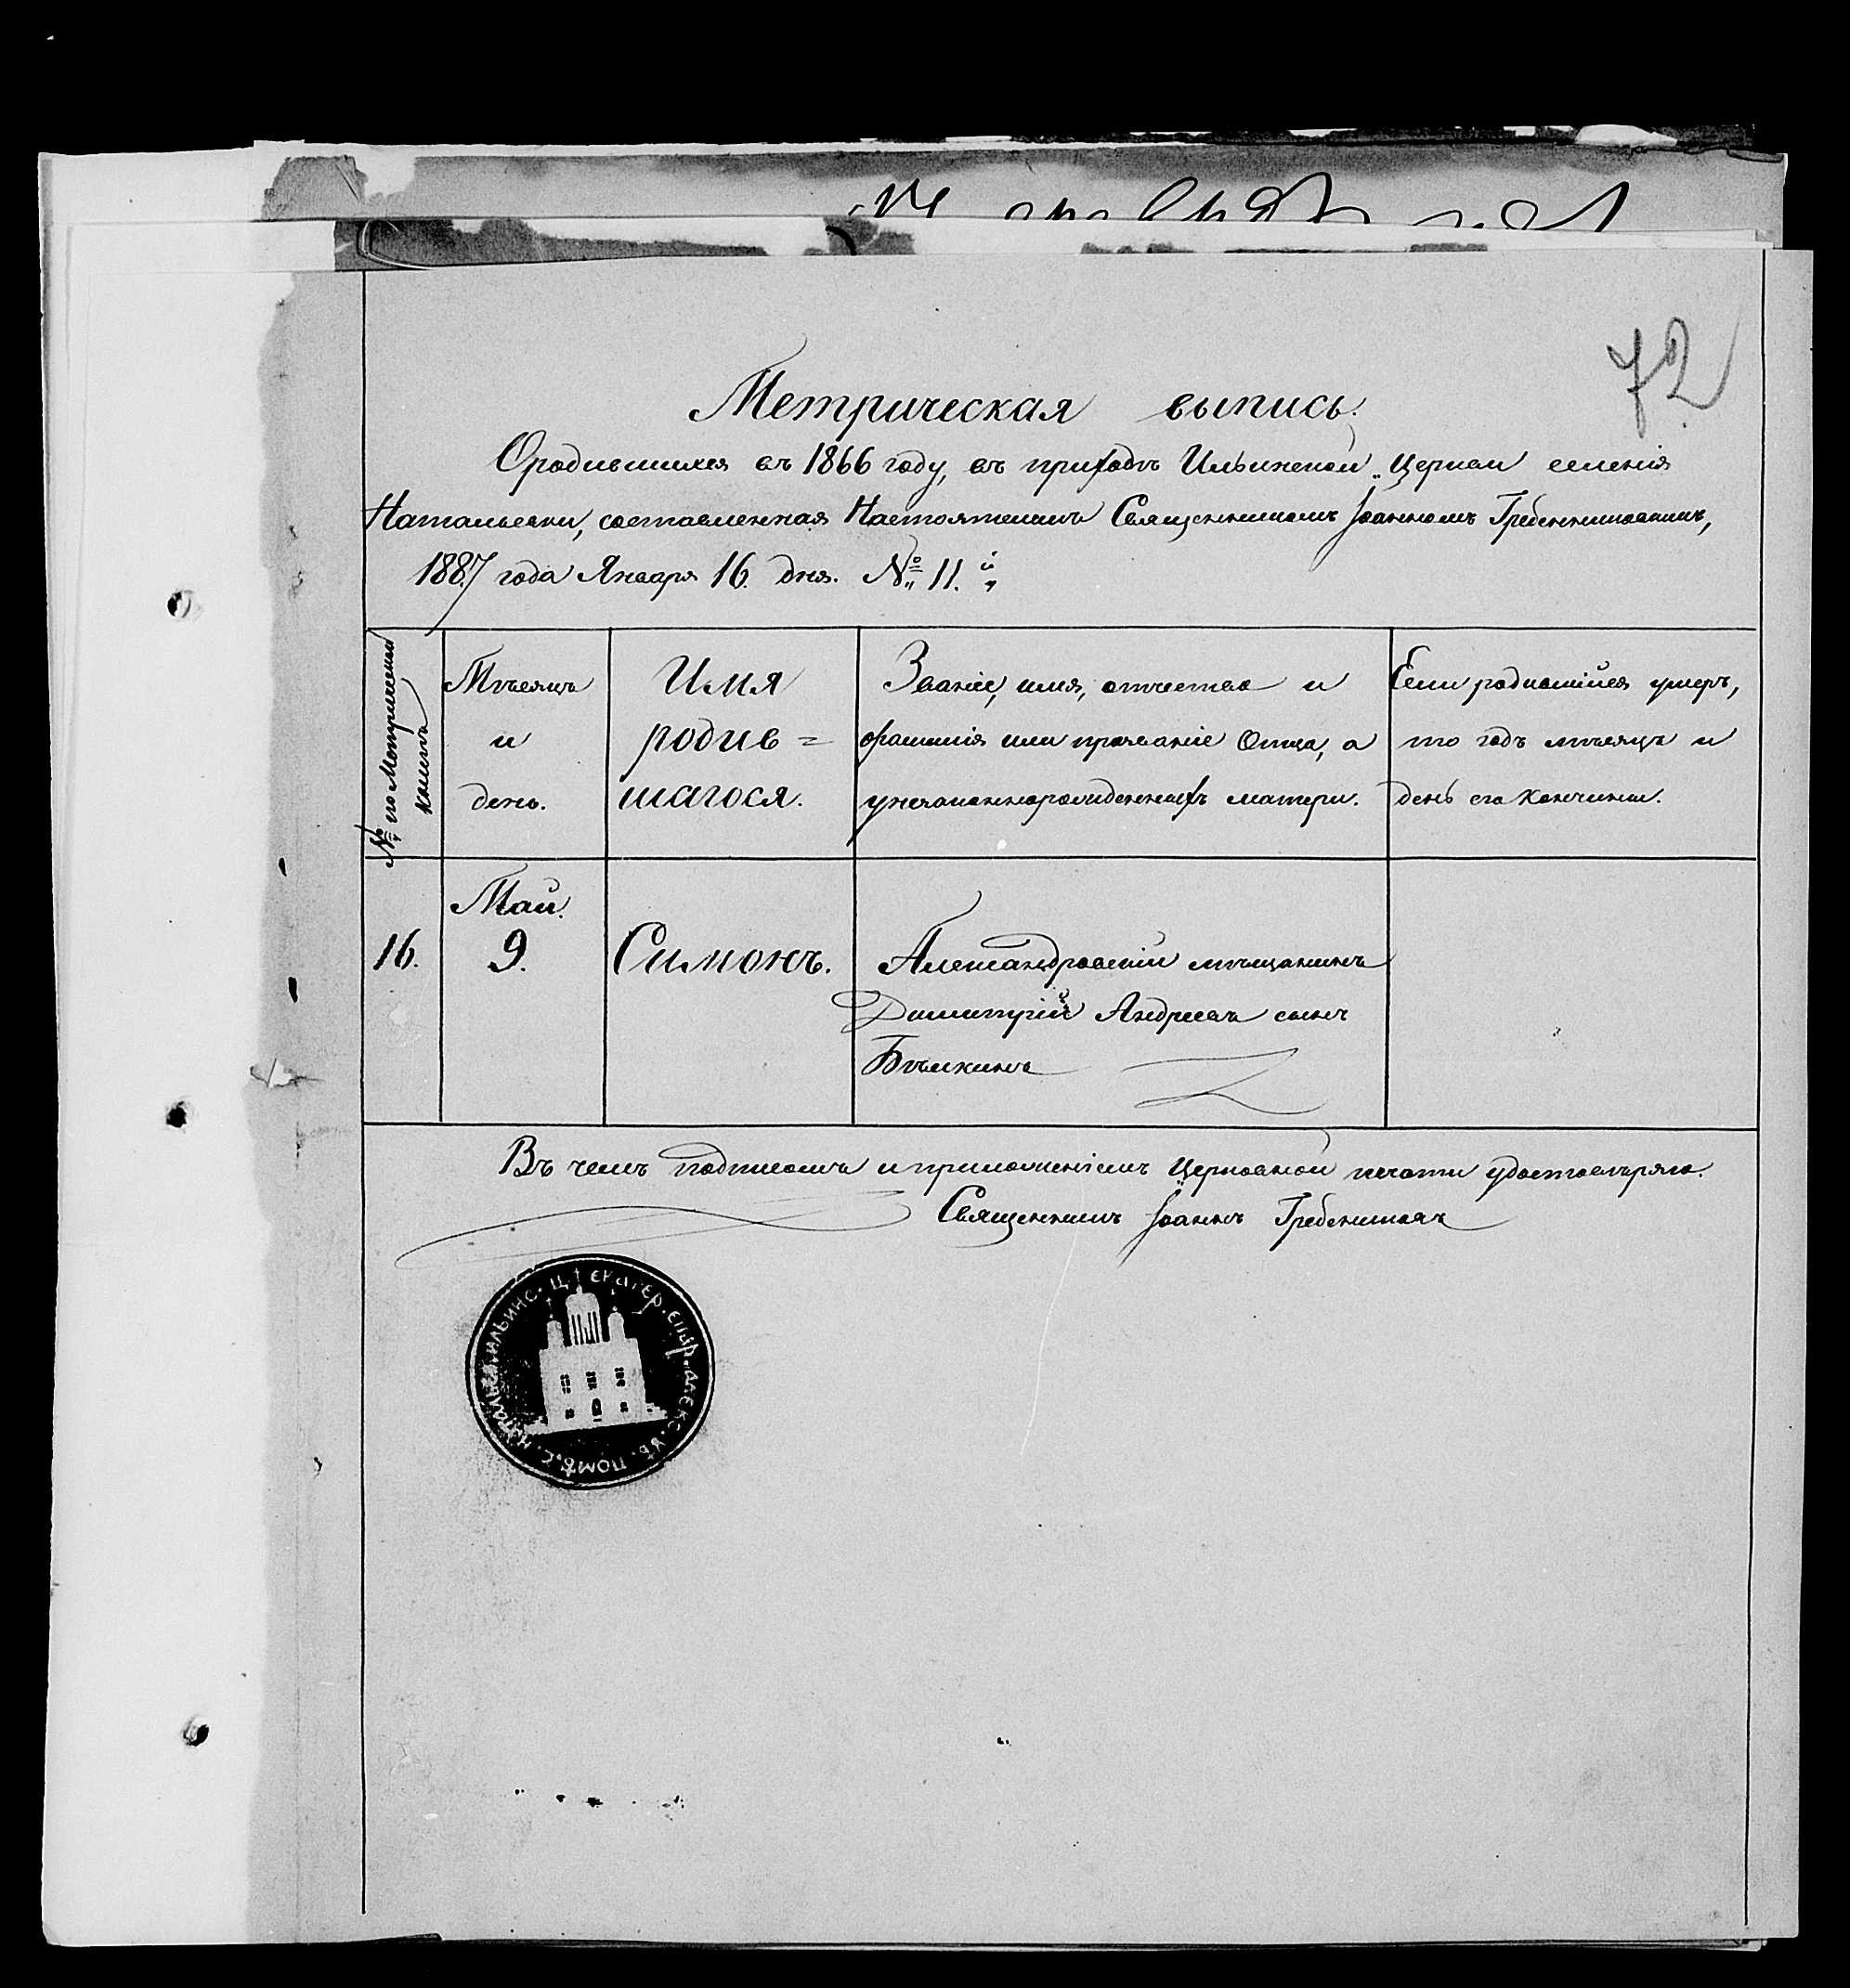 72
Метрическая выпись.
О родившихся въ 1866 году, въ приходѣ Ильинской Церкви селенія
Натальевки, составленная Настоятелемъ Священникомъ Іоанномъ Гребенниковымъ,
1887 года Января 16. дня. № 11.
№ по Метрической книгѣ
Мѣсяцъ и день.
Имя родив= шагося.
Званіе, имя, отчество и фамилія или прозваніе Отца, а у незаконнорожденныхъ матери.
Если родившійся умеръ, то годъ мѣсяцъ и день его кончины.
Май.
16. 9. Симонъ. Александровскій мѣщанинъ
Димитрій Андреевъ сынъ
Бѣлкинъ
Въ чемъ подписомъ и приложеніемъ Церковной печати удостовѣряю.
Священникъ Іоаннъ Гребенниковъ
ЕКАТЕР. ЕПАР. АЛЕКС. УѢ. ПОМѢ. С. НАТАЛЬЕВ. ИЛЬИНС. Ц.